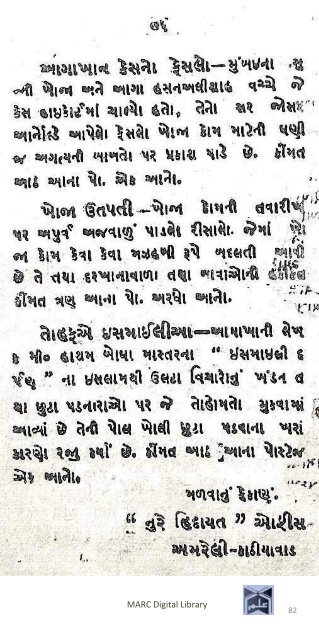 ૭૬
આગાખાન કેસનો ફેસલો—મુંબઇના સુ
ન્ની ખોજા અને આગા હસનઅલીશાહ વચ્ચે જે
કેસ હાઇકોર્ટમાં ચાલ્યો હતો, તેનો સર જોસફ
આર્નોલ્ડે આપેલો ફેસલો ખોજા કોમ માટેની ઘણી
જ અગત્યની બાબતો પર પ્રકાશ પાડે છે. કીંમત
આઠ આના પો. એક આનો.
ખોજા ઉતપતી—ખોજા કોમની તવારીખ
પર અપુર્વ અજવાળું પાડતો રીસાલો. જેમાં ખો
જા કોમ કેવા કેવા મઝહબી રૂપે બદલતી આવી
છે તે તથા દરખાનાવાળા તથા બારભાઇઓની હકીકત
કીંમત ત્રણ આના પો. અરધો આનો.
તોહફએ ઇસમાઇલીઆ—આગાખાની લેખ
ક મી૦ હાશમ બોઘા માસ્તરના “ ઇસમાઇલી દ
ર્પણ ” ના ઇસલામથી ઉલટા વિચારોનું ખંડન ત
થા છુટા પડનારાઓ પર જે તોહોમતો મુકવામાં
આવ્યાં છે તેની પોલ ખોલી છુટા પડવાના ખરાં
કારણો રજુ કર્યાં છે. કીંમત આઠ આના પોસ્ટેજ
એક આનો.
મળવાનું ઠેકાણું.
“ નુરે હિદાયત ” ઓફીસ
અમરેલી-કાઠીયાવાડ
MARC Digital Library
82